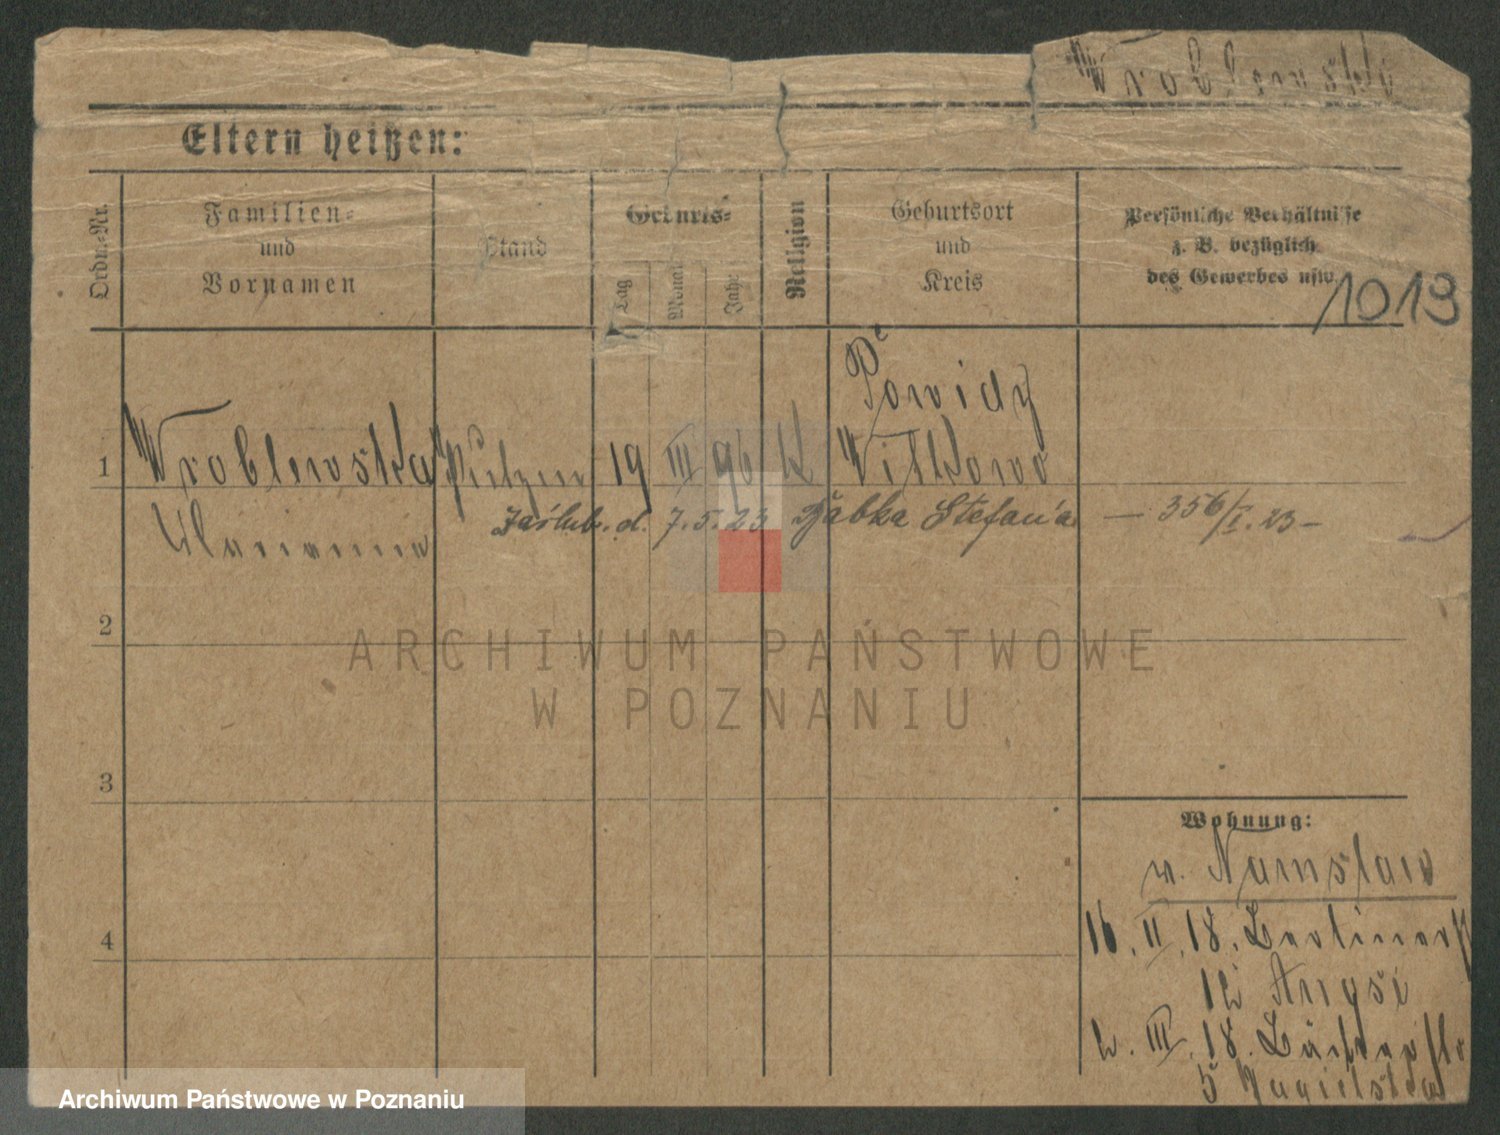 Wroblewski
Eltern heißen:
Ordn.-Nr.
Familien-
und
Vornamen
Stand
Geburts-
Tag
Monat
Jahr
Religion
Geburtsort
und
Kreis
Persönliche Verhältnisse
z. B. bezüglich
des Gewerbes usw.
1019
Powidz
1 Wroblewska 19 III 96 K Witkowo
Marianna
Zaślub. d. 7.5.23 Bąbka Stefania — 356/I.23 —
2
3
4
Wohnung:
w. Namslaw
16. II. 18. Berlinerstr
12
2. III. 18.
5
ARCHIWUM PAŃSTWOWE
W POZNANIU
Archiwum Państwowe w Poznaniu